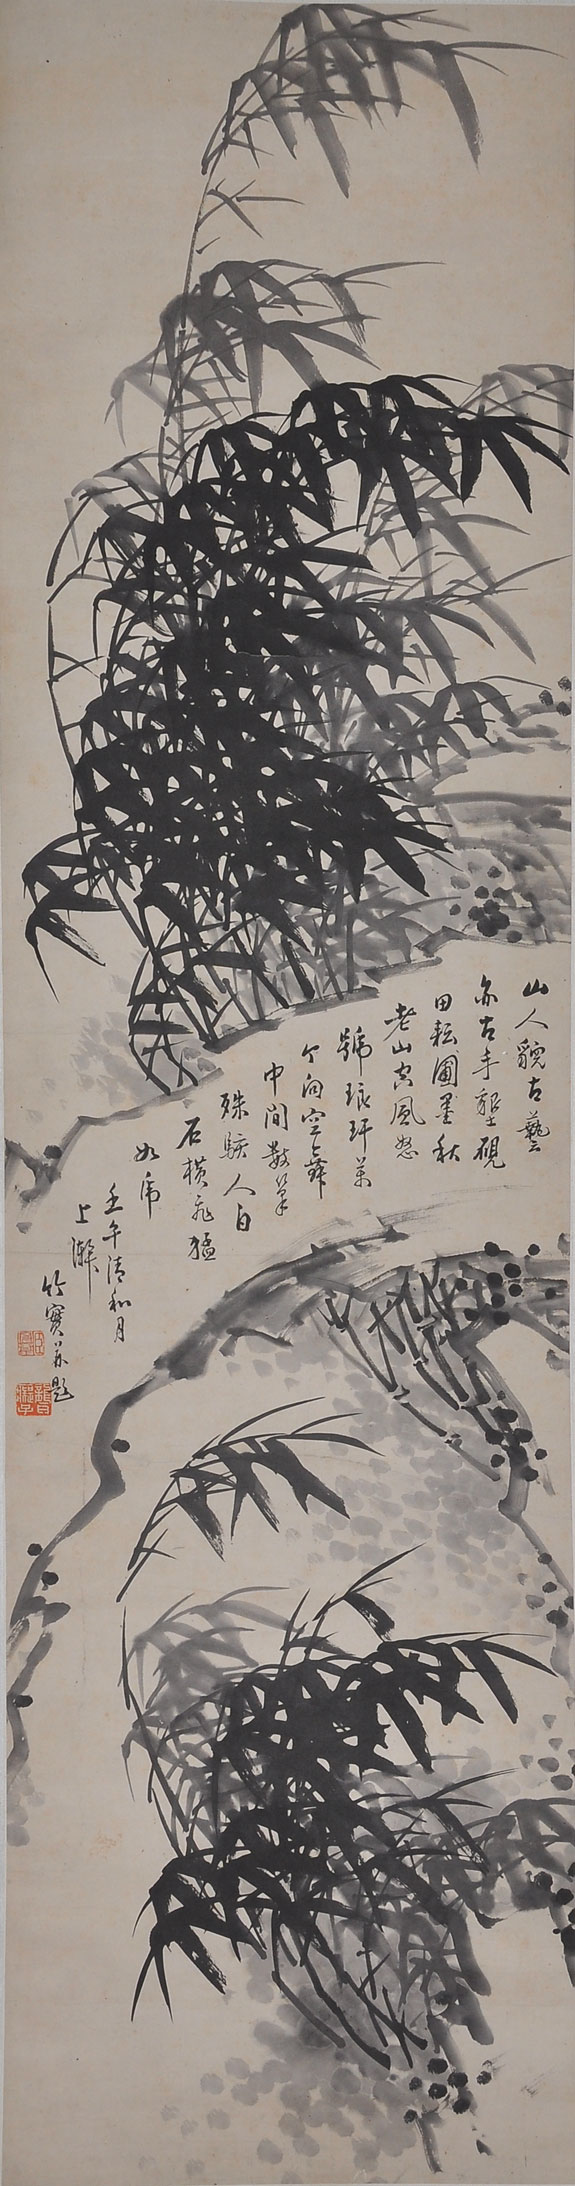 山人貌古藝
亦古手墾硯
田耘圃墨秋
老山空風怒
號琅玕萬
个向空舞
中間數筆
殊駭人白
石橫飛猛
如虎
壬午清和月
上澣
竹寶并題